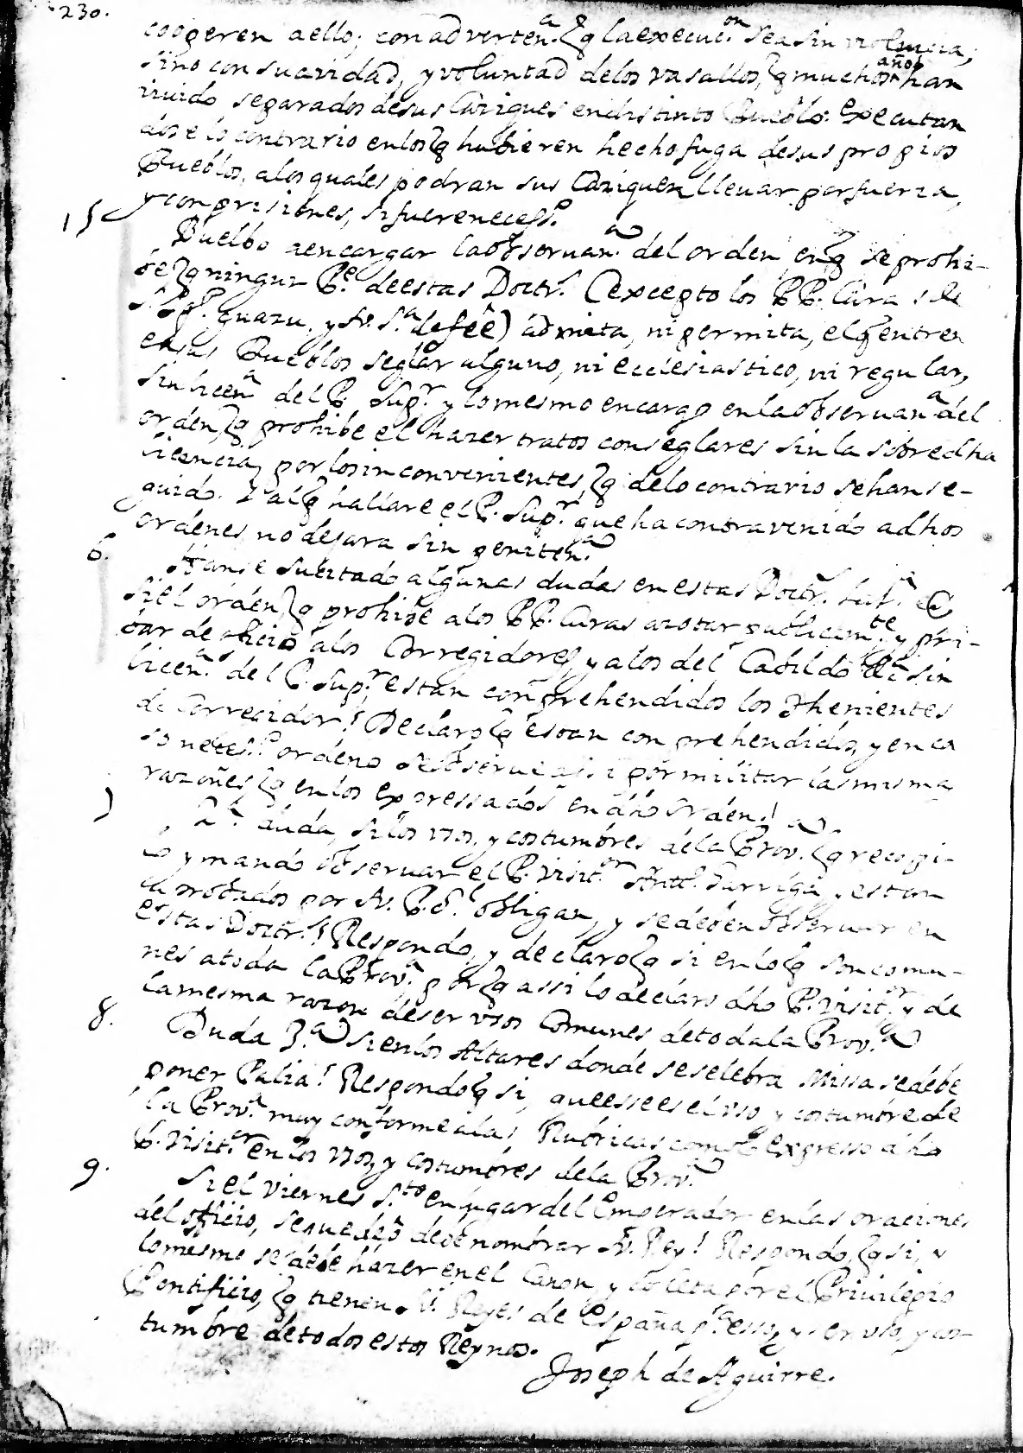 230.
cooperen a ello; con adverten.ª q̃ la execuc.on sea sin violencia,
sino con suavidad, y voluntad de los vasallos, q̃ muchos años han
vivido separados de sus Caziques en distinto Pueblo. Executan
dose lo contrario en los q̃ hubieren hecho fuga de sus propios
Pueblos, a los quales podran sus Caziques llevar por fuerza,
y con prisiones, si fuere necess.º
15 Buelbo a encargar la observan.ª del orden, en q̃ se prohi-
be q̃ ningun P.e de estas Doctr.s (excepto los PP. Curas de
S. Ig.º guazu, y N. S.ª de fee) admita, ni permita, el q̃ entren
en sus Pueblos seglar alguno, ni ecclesiastico, ni regular,
sin licen.ª del P. Sup.r y lo mesmo encargo en la observan.ª del
orden, q̃ prohibe el hazer tratos con seglares sin la sobredha
licencia, por los inconvenientes, q̃ de lo contrario se han se-
guido. Y al q̃ hallare el P. Sup.r que ha contravenido a dhos
ordenes, no dejara sin peniten.ª
6. Hanse sucitado algunas dudas en estas Doctr.s
Si el orden, q̃ prohibe a los PP. Curas azotar publicam.te y pri-
var de oficio a los Corregidores, y a los del Cabildo sin
licen.ª del P. Sup.r estan comprehendidos los Thenientes
de Corregidor? Declaro q̃ estan comprehendidos, y en ca
so neces.º ordeno se observe assi por militar las misma
razones q̃ en los expressados en dho orden.
7 2.ª duda, si los usos, y costumbres de la Prov.ª q̃ recogi-
o y mandó observar el P. Visit.or Antt.º Garriga, y estan
aprobados por N. P. G.l obligan, y se deben observar en
estas Doctr.s? Respondo, y declaro q̃ si en lo q̃ son comu-
nes a toda la Prov.ª por q̃ assi lo declaro dho P. Visit.or y de
la mesma razon de ser usos comunes de toda la Prov.ª
8. Duda 3.ª Si en los Altares donde se selebra Missa se debe
poner Palia? Respondo q̃ si, que esse es el uso y costumbre de
la Prov.ª muy conforme a las Rubricas como expresso dho
P. Visit.or en los usos, y costumbres de la Prov.ª
9. Si el Viernes S.to en lugar del Emperador en las oraciones
del oficio, se puede, o debe nombrar N. Rey? Respondo, q̃ si, y
lo mesmo se debe hazer en el Canon, y colecta por el Privilegio
Pontificio, q̃ tienen N. Reyes de España p.ª esso, y ser uso, y cos-
tumbre de todos estos Reynos.
Joseph de Aguirre.